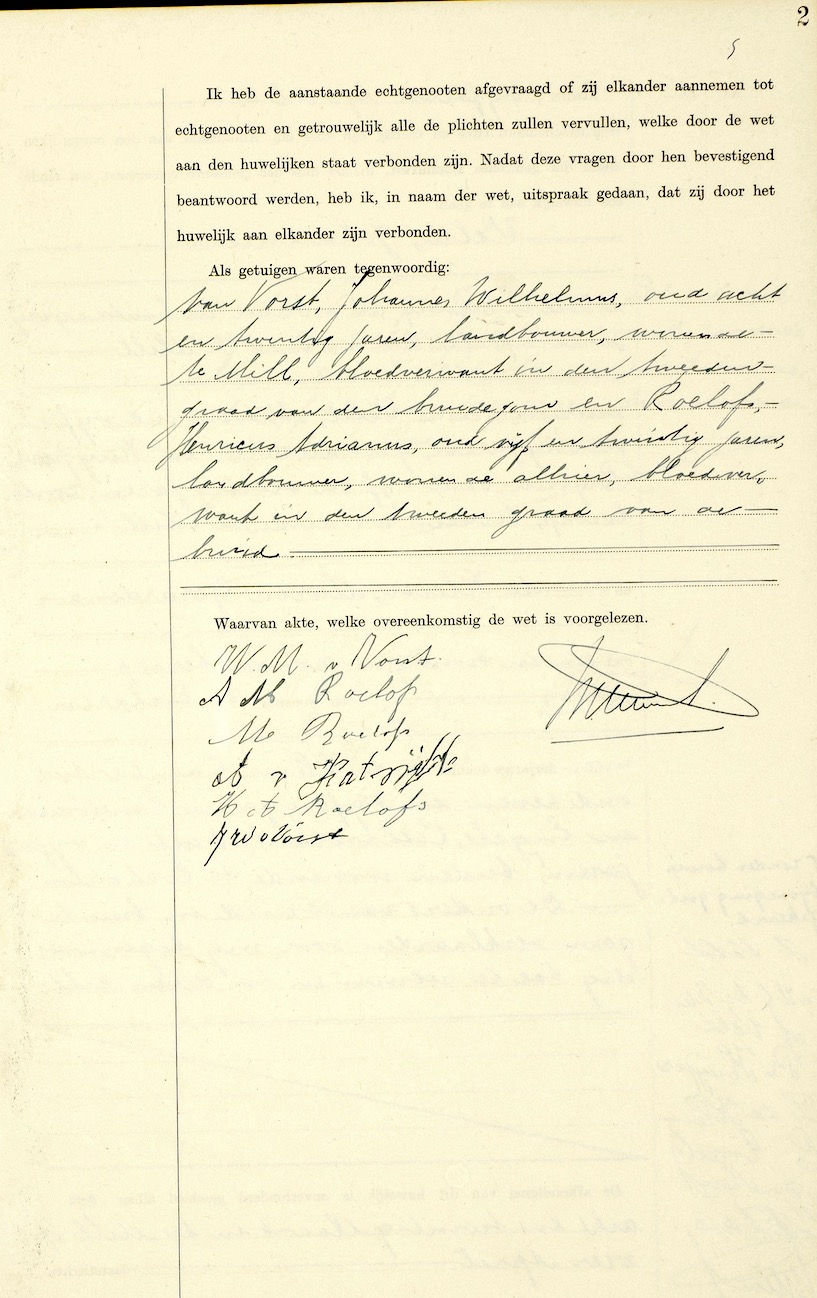 2
5
Ik heb de aanstaande echtgenooten afgevraagd of zij elkander aannemen tot
echtgenooten en getrouwelijk alle de plichten zullen vervullen, welke door de wet
aan den huwelijken staat verbonden zijn. Nadat deze vragen door hen bevestigend
beantwoord werden, heb ik, in naam der wet, uitspraak gedaan, dat zij door het
huwelijk aan elkander zijn verbonden.
Als getuigen waren tegenwoordig:
van Vorst, Johannes Wilhelmus, oud acht
en twintig jaren, landbouwer, wonende
te Mill, bloedverwant in den tweeden
graad van den bruidegom en Roelofs,
Henricus Adrianus, oud vijf en twintig jaren,
landbouwer, wonende alhier, bloedver,
want in den tweeden graad van de
bruid.
Waarvan akte, welke overeenkomstig de wet is voorgelezen.
W. M. v Vorst.
A M Roelofs
M Roelofs
A v Katwijk
H A Roelofs
J W v Vorst